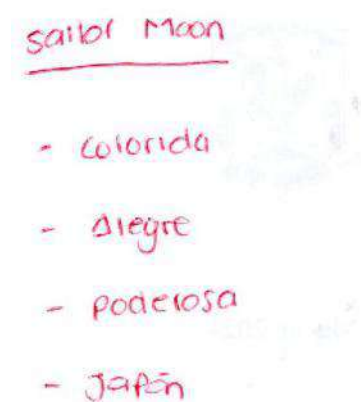 Sailor Moon
- Colorida
- Alegre
- Poderosa
- Japón